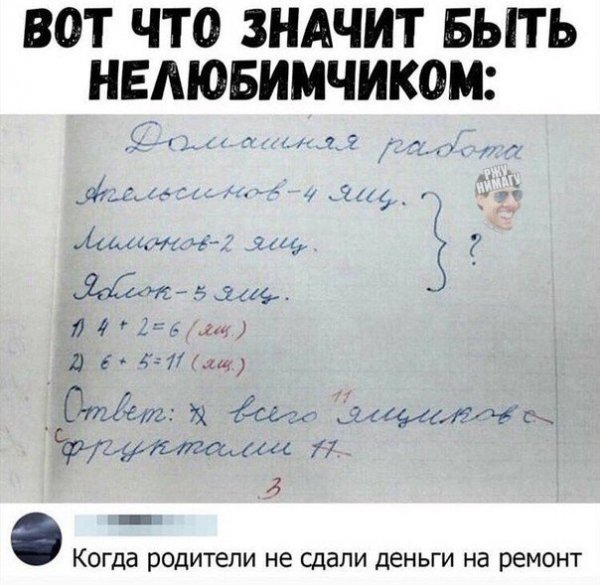 ВОТ ЧТО ЗНАЧИТ БЫТЬ
НЕЛЮБИМЧИКОМ:
Домашняя работа
РЖУ
НИМАГУ
Апельсинов-4 ящ.
Лимонов-2 ящ.
?
Яблок-5 ящ.
1) 4+2=6 (ящ.)
2) 6+5=11 (ящ.)
11
Ответ: всего ящиков с
с фруктами 11.
3
Когда родители не сдали деньги на ремонт